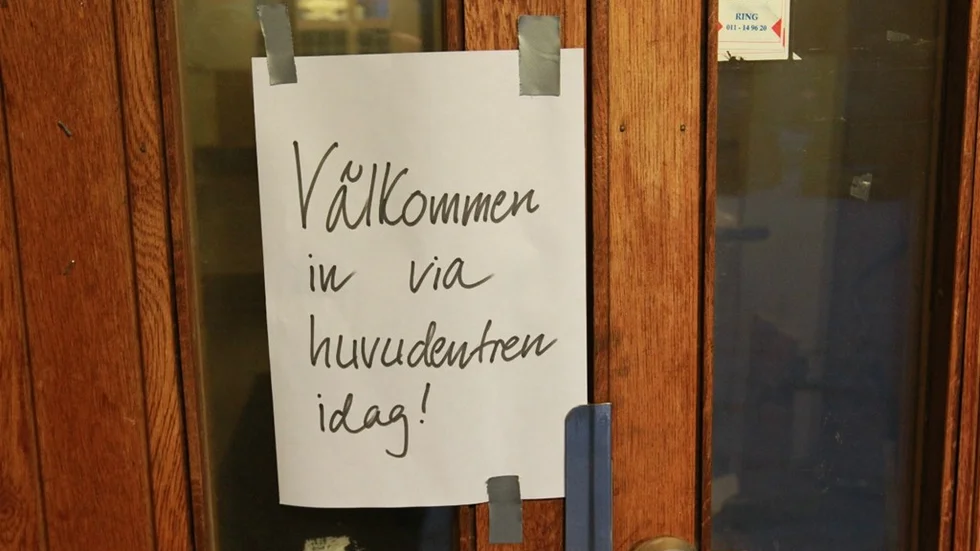 RING
011 - 14 96 20
Välkommen
in via
huvudentren
idag!